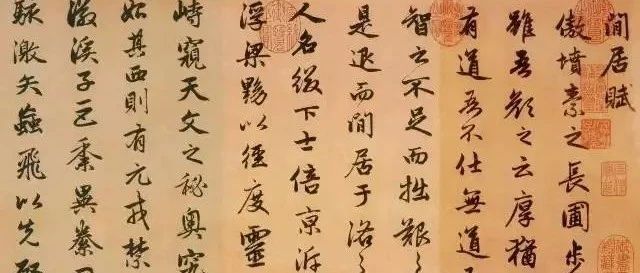 閒居賦
傲墳素之長圃步
雖吾顏之云厚猶
有道吾不仕無道
智之不足而拙艱之
是退而閒居于洛之
人名綴下士倍京泝
浮梁黝以徑度靈
峙窺天文之秘奧究
始其西則有元戎禁
徽溪子巨黍異絭
駭激矢蝱飛以先